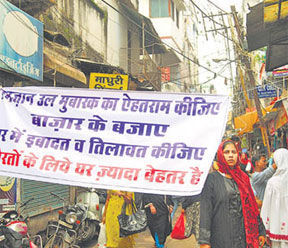 माधुरी
रमज़ान उल मुबारक का ऐहतराम कीजिए
बाज़ार के बजाए
घर में इबादत व तिलावत कीजिए
औरतों के लिये घर ज़्यादा बेहतर है